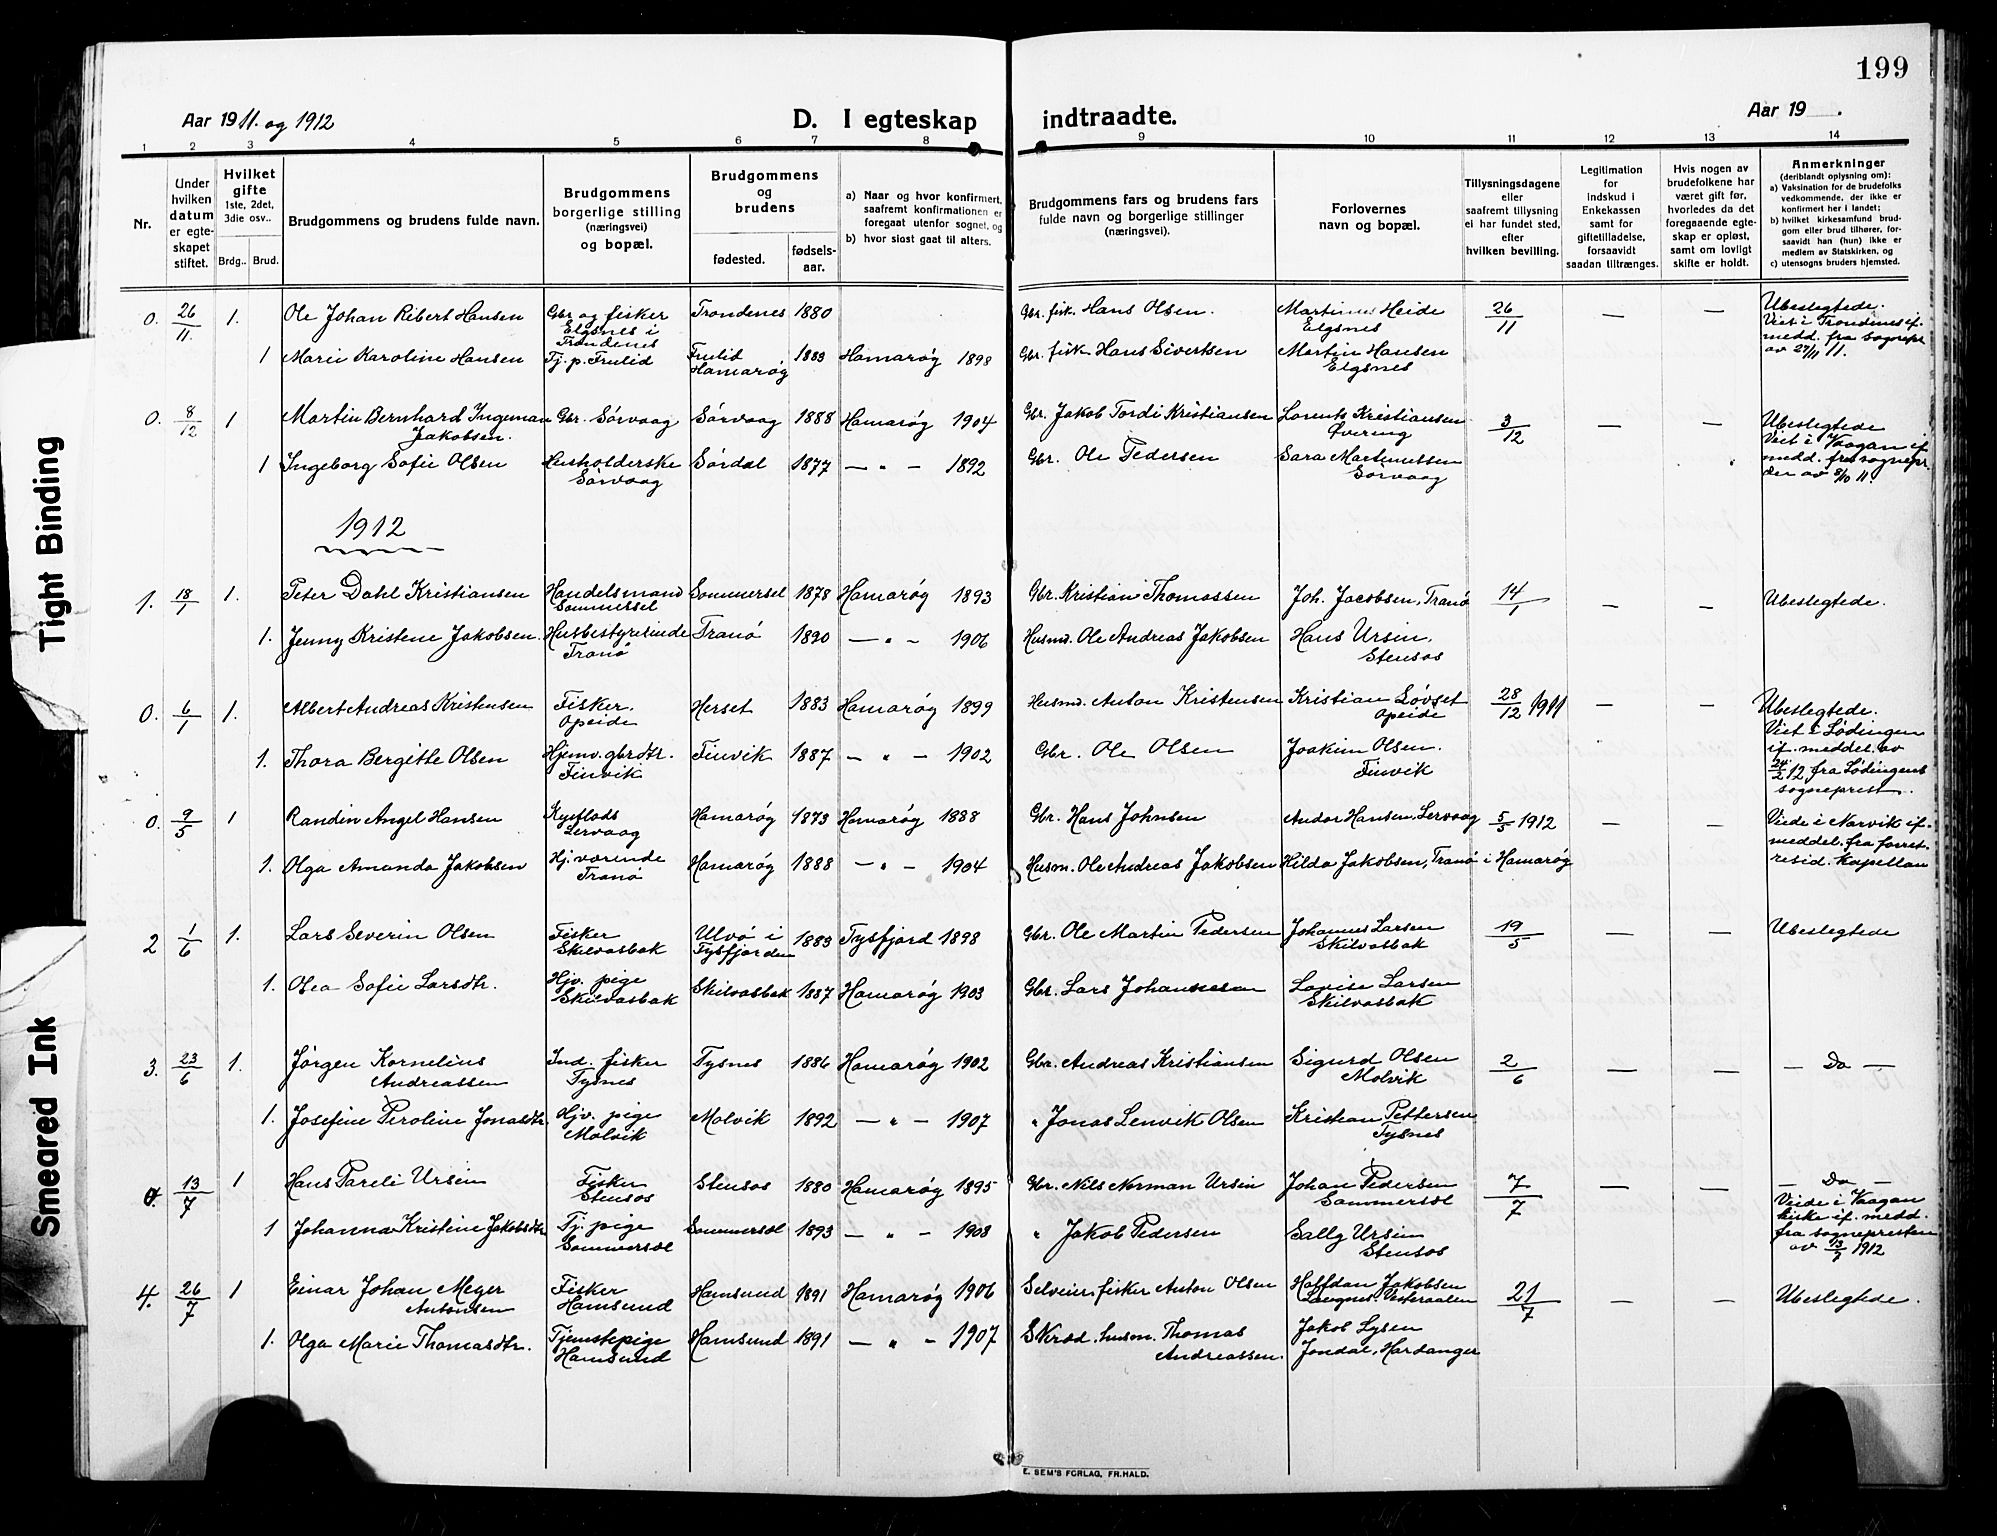 199
Aar 1911. og 1912
D. I egteskap indtraadte.
Aar 19 .
1 2 3 4 5 6 7 8 9 10 11 12 13 14
Nr.
Under hvilken datum er egteskapet stiftet.
Hvilket gifte 1ste, 2det, 3die osv..
Brdg.. Brud.
Brudgommens og brudens fulde navn.
Brudgommens borgerlige stilling (næringsvei) og bopæl.
Brudgommens og brudens
fødested.
fødselsaar.
a) Naar og hvor konfirmert, saafremt konfirmationen er foregaat utenfor sognet, og
b) hvor sisst gaat til alters.
Brudgommens fars og brudens fars fulde navn og borgerlige stillinger (næringsvei).
Forlovernes navn og bopæl.
Tillysningsdagene eller saafremt tillysning ei har fundet sted, efter hvilken bevilling.
Legitimation for Indskud i Enkekassen samt for giftetilladelse, forsaavidt saadan tiltrænges.
Hvis nogen av brudefolkene har været gift før, hvorledes da det foregaaende egteskap er opløst, samt om lovligt skifte er holdt.
Anmerkninger (deriblandt oplysning om):
a) Vaksination for de brudefolks vedkommende, der ikke er konfirmert her i landet;
b) hvilket kirkesamfund brudgom eller brud tilhører, forsaavidt han (hun) ikke er medlem av Statskirken, og
c) utensogns bruders hjemsted.
0. 26/11. 1. Ole Johan Ribert Hansen Gbr og fisker Elgsnes i Trondenes Trondenes 1880 Gbr. fisk. Hans Olsen. Martinus Heide Elgsnes 26/11 — — Ubeslegtede. Viet i Trondenes if. medd. fra sognepr av 27/11 11.
1 Marie Karoline Hansen Tj. p. Frulid Frulid Hamarøy 1883 Hamarøy 1898 Gbr. fisk Hans Sivertsen Martin Hansen Elgsnes
0. 8/12 1 Martin Bernhard Ingeman Jakobsen. Gbr. Sørvaag Sørvaag 1888 Hamarøy 1904 Gbr. Jakob Tordi Kristiansen Lorents Kristiansen Øvering 3/12 — — Ubeslegtede Viet i Vaagan if medd. fra sognepr. der av 8/10 11.
1 Ingeborg Sofie Olsen Husholderske Sørvaag Sørdal 1877 — " — 1892 Gbr. Ole Pedersen Sara Martinussen Sørvaag
1912
1. 18/1 1. Peter Dahl Kristiansen Handelsmand Sommersel Sommersel 1878 Hamarøy 1893 Gbr. Kristian Thomassen Joh. Jacobsen, Tranø 14/1 — — Ubeslegtede.
1. Jenny Kristene Jakobsen Husbestyrerinde Tranø Tranø 1890 — " — 1906 Husmd. Ole Andreas Jakobsen Hans Ursin, Stensos
0. 6/1 1. Albert Andreas Kristensen Fisker. Opeide Herset 1883 Hamarøy 1899 Husmd. Anton Kristensen Kristian Løvset Opeide 28/12 1911 — — Ubeslegtede. Viet i Lødingen if. meddel. av 24/2 12 fra Lødingens sogneprest.
1. Thora Bergitte Olsen Hjemv. gbrdtr. Finvik Finvik 1887 — " — 1902 Gbr. Ole Olsen Joakim Olsen. Finvik
0. 9/5 1 Randin Angel Hansen Lervaag Hamarøy 1873 Hamarøy 1888 Gbr. Hans Johnsen Andor Hansen, Lervaag 5/5 1912 — — Viede i Narvik if. meddel. fra forret. resid. Kapellan
1. Olga Amanda Jakobsen Hj. værende Tranø Hamarøy 1888 — " — 1904 Husm. Ole Andreas Jakobsen Hilda Jakobsen, Tranø i Hamarøy
2 1/6 1. Lars Severin Olsen Fisker Skilvasbak Ulvø i Tysfjorden 1883 Tysfjord 1898 Gbr. Ole Martin Pedersen Johannes Larsen Skilvasbak 19/5 — — Ubeslegtede
1. Olea Sofie Larsdtr. Hjv. pige Skilvasbak Skilvasbak 1887 Hamarøy 1903 Gbr. Lars Johannesen Lovise Larsen Skilvasbak
3. 23/6 1. Jørgen Kornelius Andreassen Ind. fisker Tysnes Tysnes 1886 Hamarøy 1902 Gbr. Andreas Kristiansen Sigurd Olsen Molvik 2/6 — — — Do —
1. Josefine Peroline Jonasdtr. Hjv. pige Molvik Molvik 1892 — " — 1907 " Jonas Lenvik Olsen Kristian Pettersen Tysnes
0. 13/7 1 Hans Pareli Ursin Fisker Stensos Stensos 1880 Hamarøy 1895 Gbr. Nils Norman Ursin Johan Pedersen Sommersel 7/7 — — — Do — Viede i Vaagan kirke if. medd. fra sognepresten av 13/7 1912
1 Johanna Kristine Jakobsdtr Tj. pige Sommersel Sommersel 1893 — " — 1908 " Jakob Pedersen Sally Ursin Stensos
4. 26/7 1 Einar Johan Meyer Antonsen Fisker Hamsund Hamsund 1891 Hamarøy 1906 Selveier, fisker Anton Olsen Halfdan Jakobsen Langnes Vesteraalen 21/7 — — Ubeslegtede.
1. Olga Marie Thomasdtr. Tjenestepige Hamsund Hamsund 1891 — " — 1907 Skræd. husm. Thomas Andreassen. Jakob Lysen Jondal, Hardanger
E. SEM'S FORLAG, FR.HALD.
Tight Binding
Smeared Ink